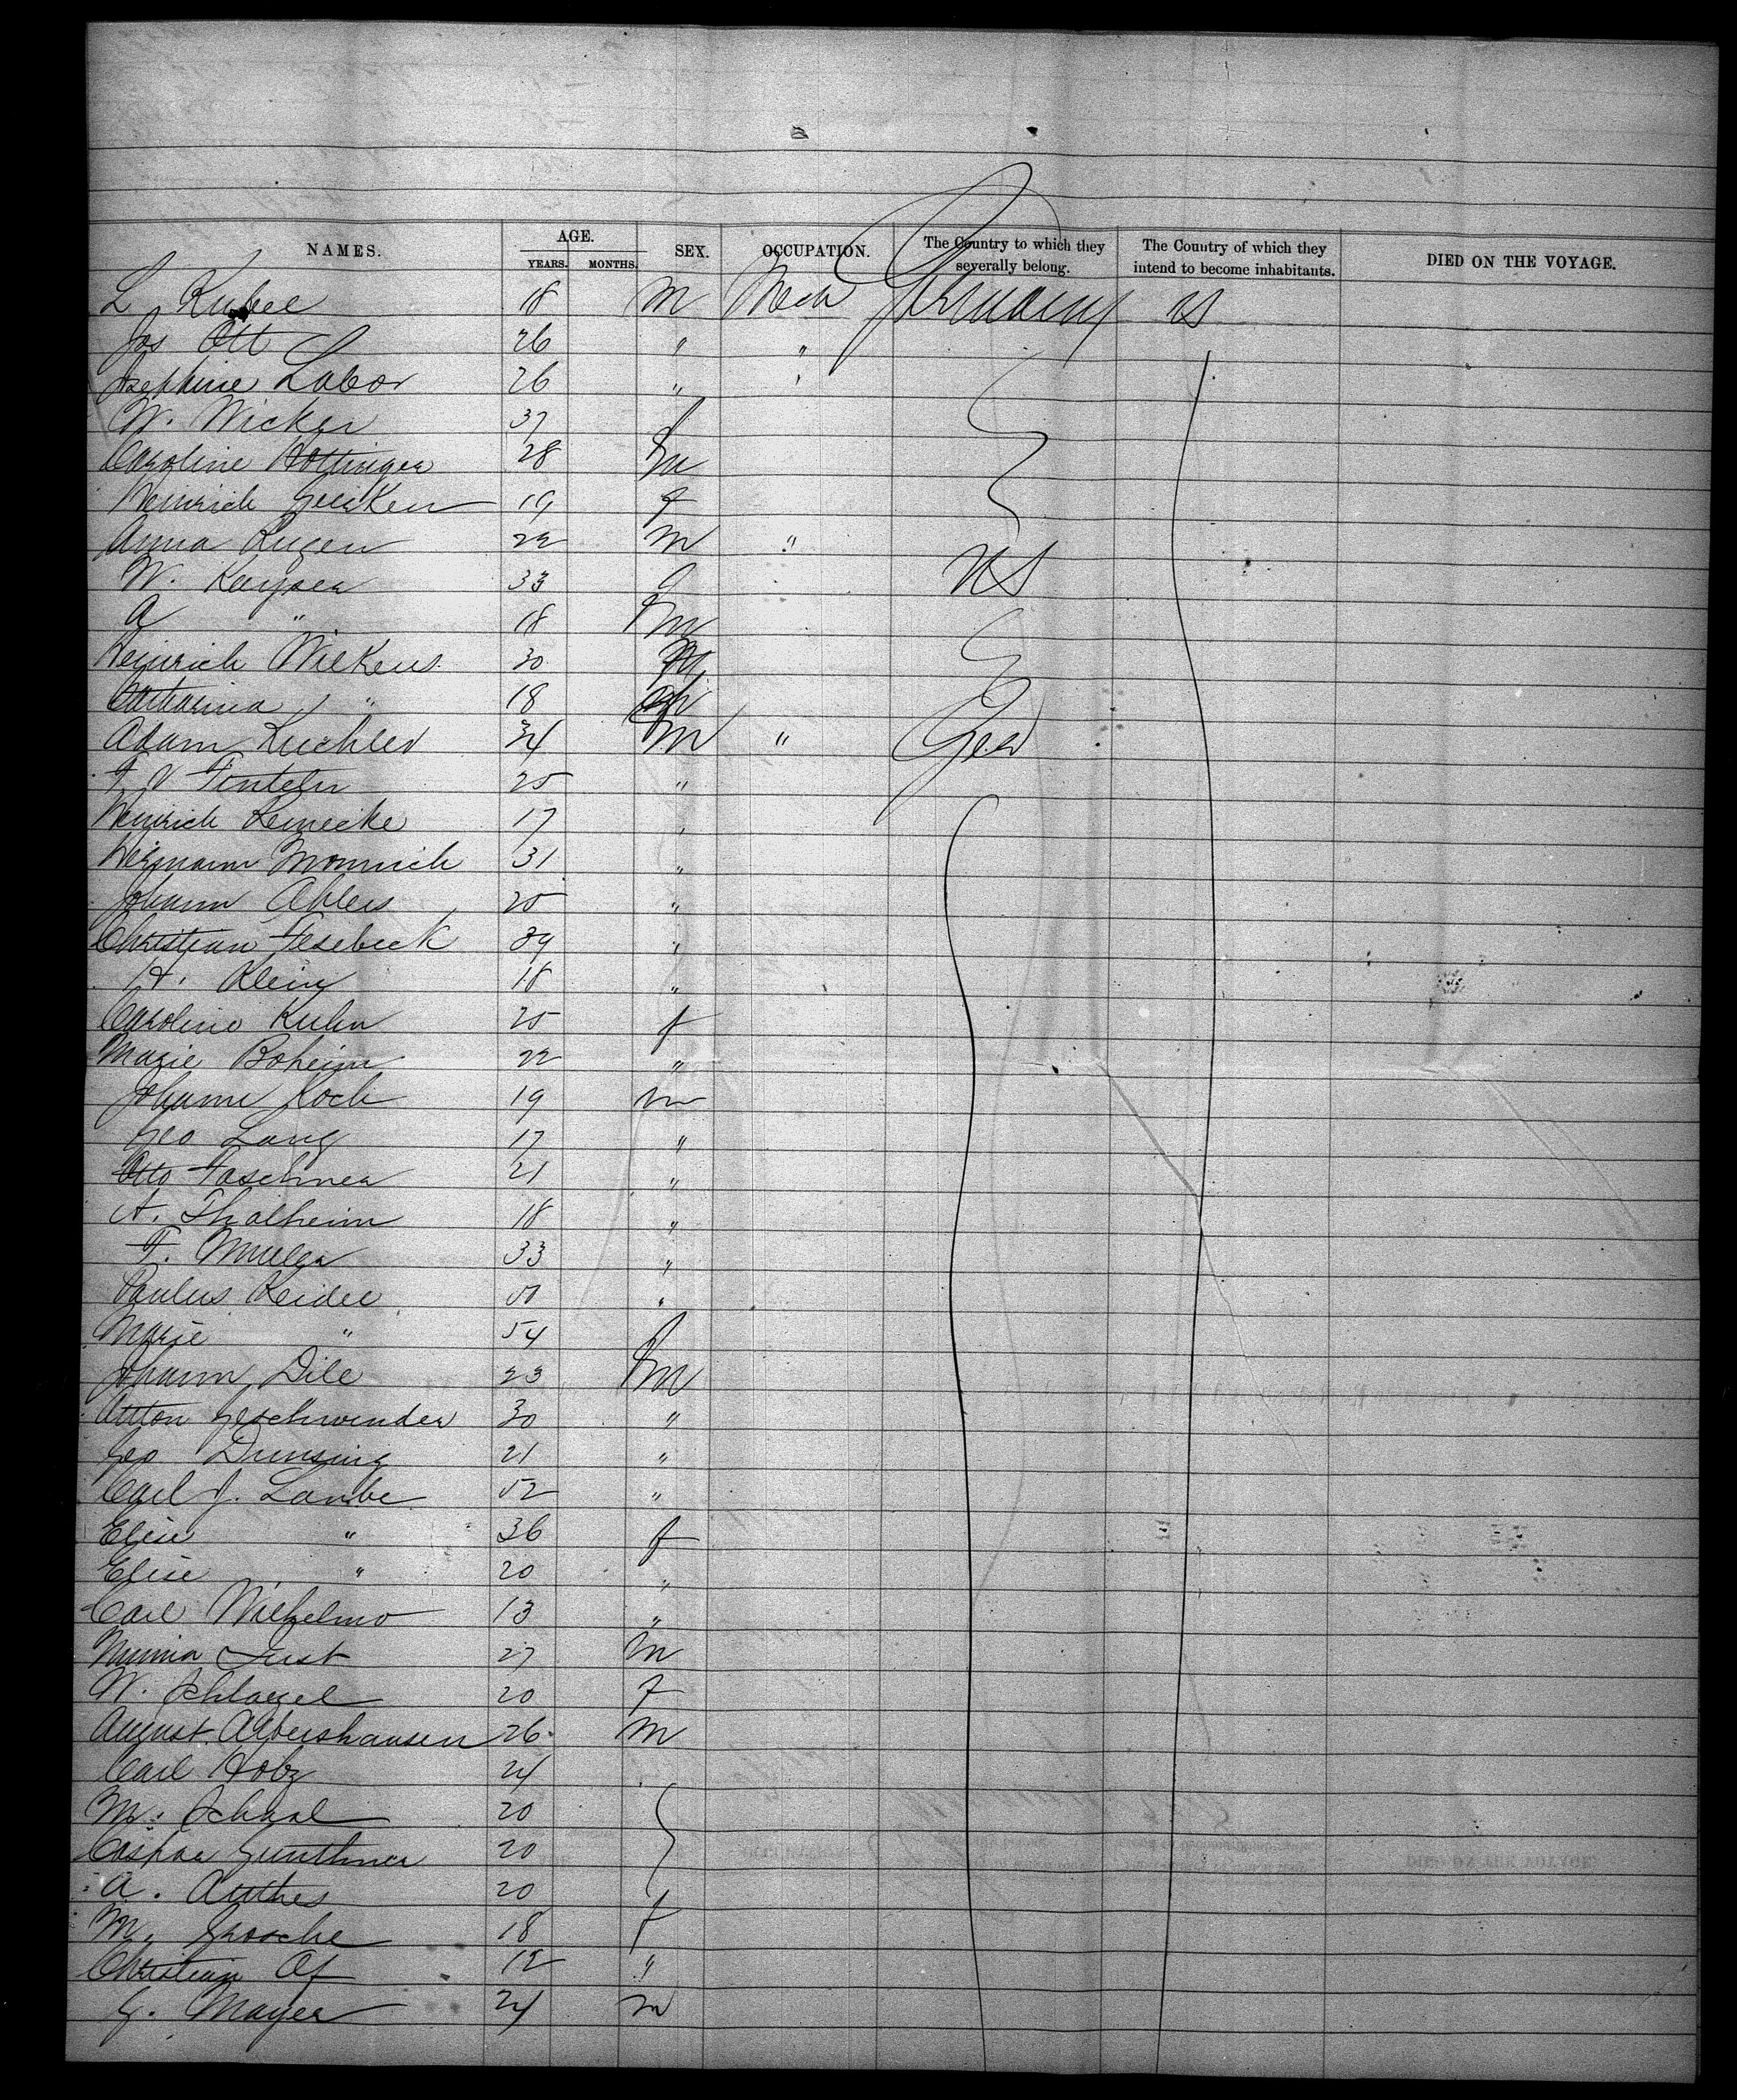 NAMES. AGE. SEX. OCCUPATION. The Country to which they severally belong. The Country of which they intend to become inhabitants. DIED ON THE VOYAGE.
YEARS. MONTHS.
L Kubel 18 m Mech Germany US
Jos Ott 26 " "
Josephine Labor 26 " "
W. Wicker 37 f
Caroline Hottinger 28 m
Heinrich Geerken 19 f
Anna Rugen 22 m "
W. Kayser 33 f US
A " 18 m
Heinrich Wilkens 30
Catharina " 18
Adam Kuchler 34 m " Ger
F V Finteln 25 "
Heinrich Reinecke 17 "
Hermann Momnich 31 "
Johann Ahlers 25 "
Christian Fesebeck 39 "
H. Klein 18 "
Caroline Kuhn 25 f
Marie Boheim 22 "
Johann Koch 19 m
Geo Lang 17 "
Otto Faschner 21 "
A. Thalheim 18 "
F. Muller 33 "
Paulus Keidel 51 "
Marie " 54 f
Johann Dile 23 m
Anton Geschwender 30 "
Geo Dunsing 21 "
Carl J. Laube 52 "
Elise " 36 f
Elise " 20 "
Carl Wilhelms 13 "
Minna Just 27 m
W. Schlagel 20 f
August Albershausen 26 m
Carl Holz 24
M. Schaal 20
Caspar Gunthner 20
A. Anthes 20 f
M. 18
Christian Of 12 "
G. Mayer 24 m